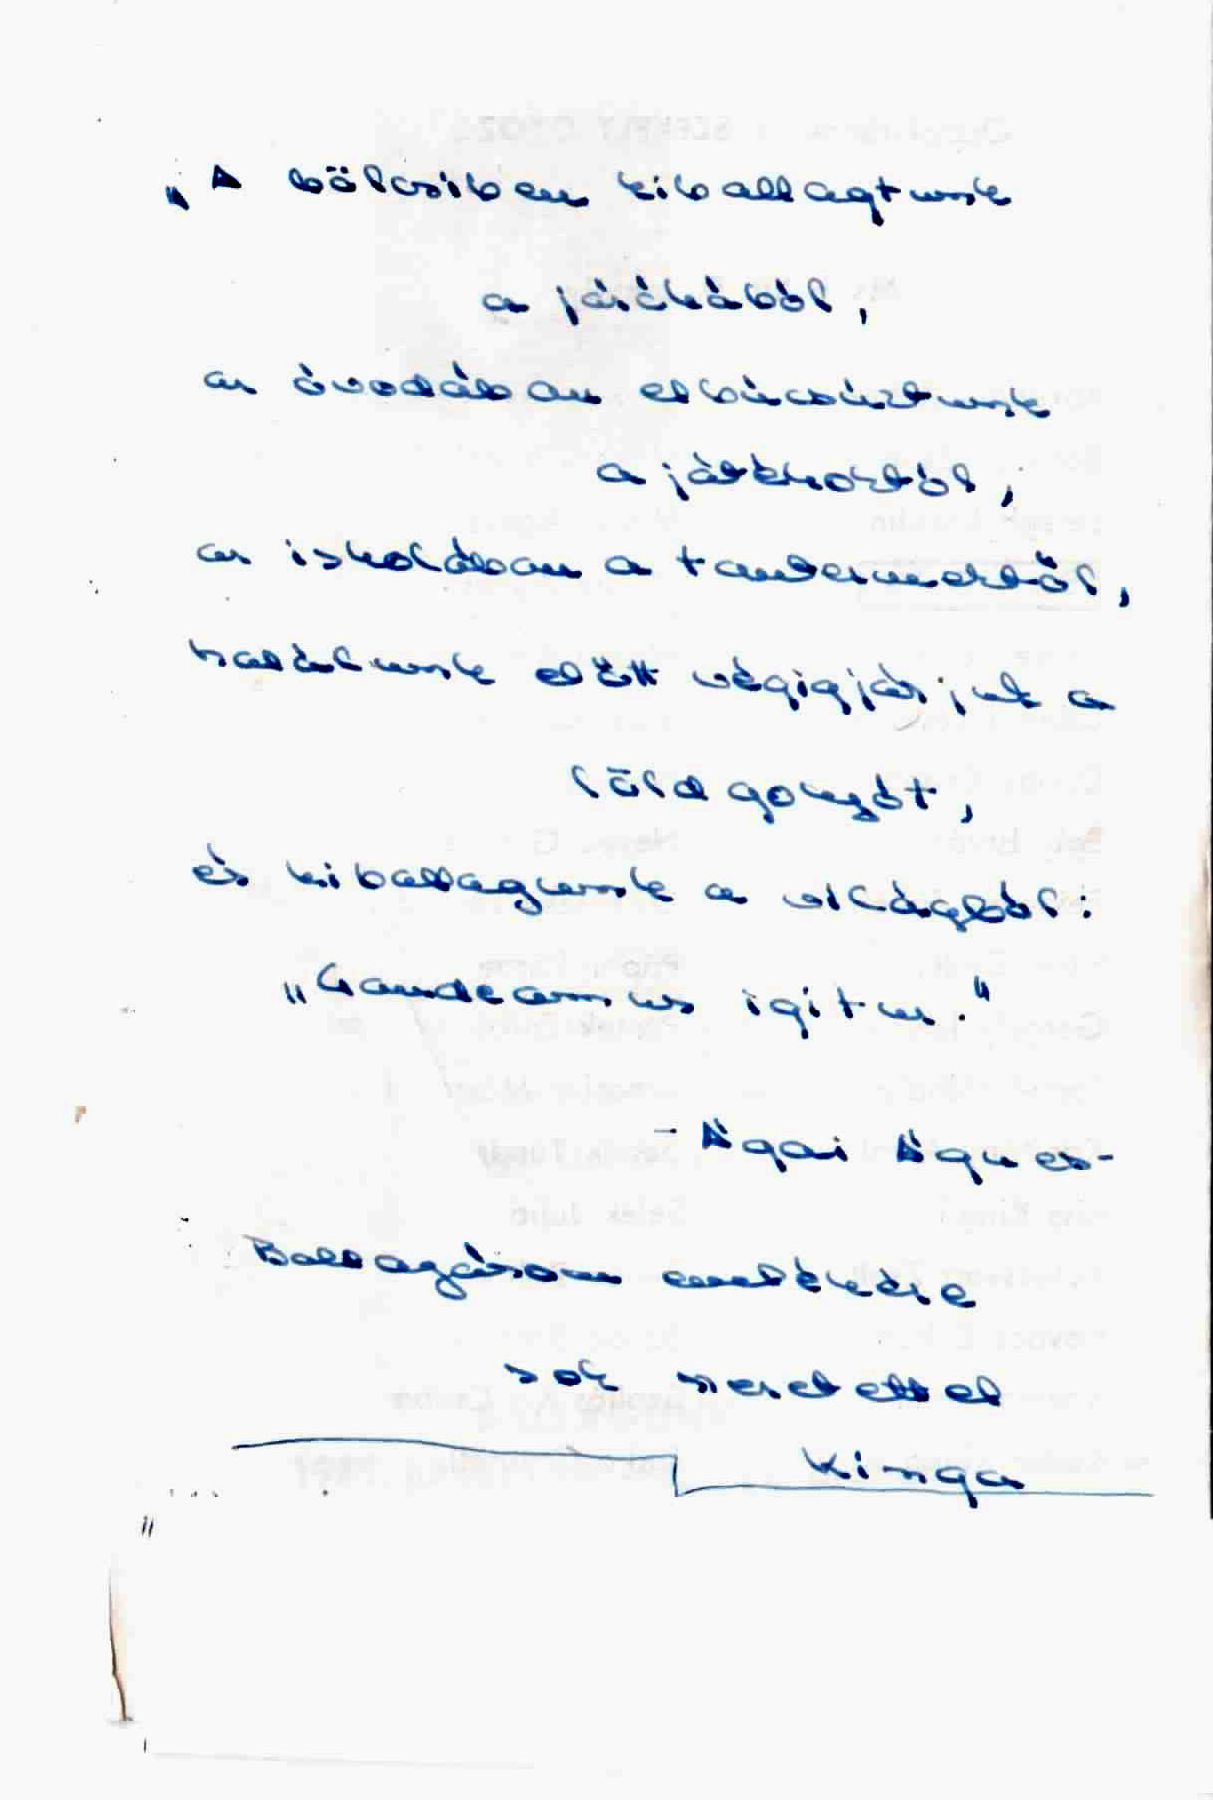 „A bölcsiben kiballagtunk
a járókából,
az óvodában elbúcsúztunk
a játékoktól,
az iskolában a tantermektől,
halálunk előtt végigjárjuk a
földgolyót,
és kiballagunk a világból:
„Gaudeamus igitur."
- Ágai Ágnes -
Ballagásom emlékére
sok szeretettel
Kinga